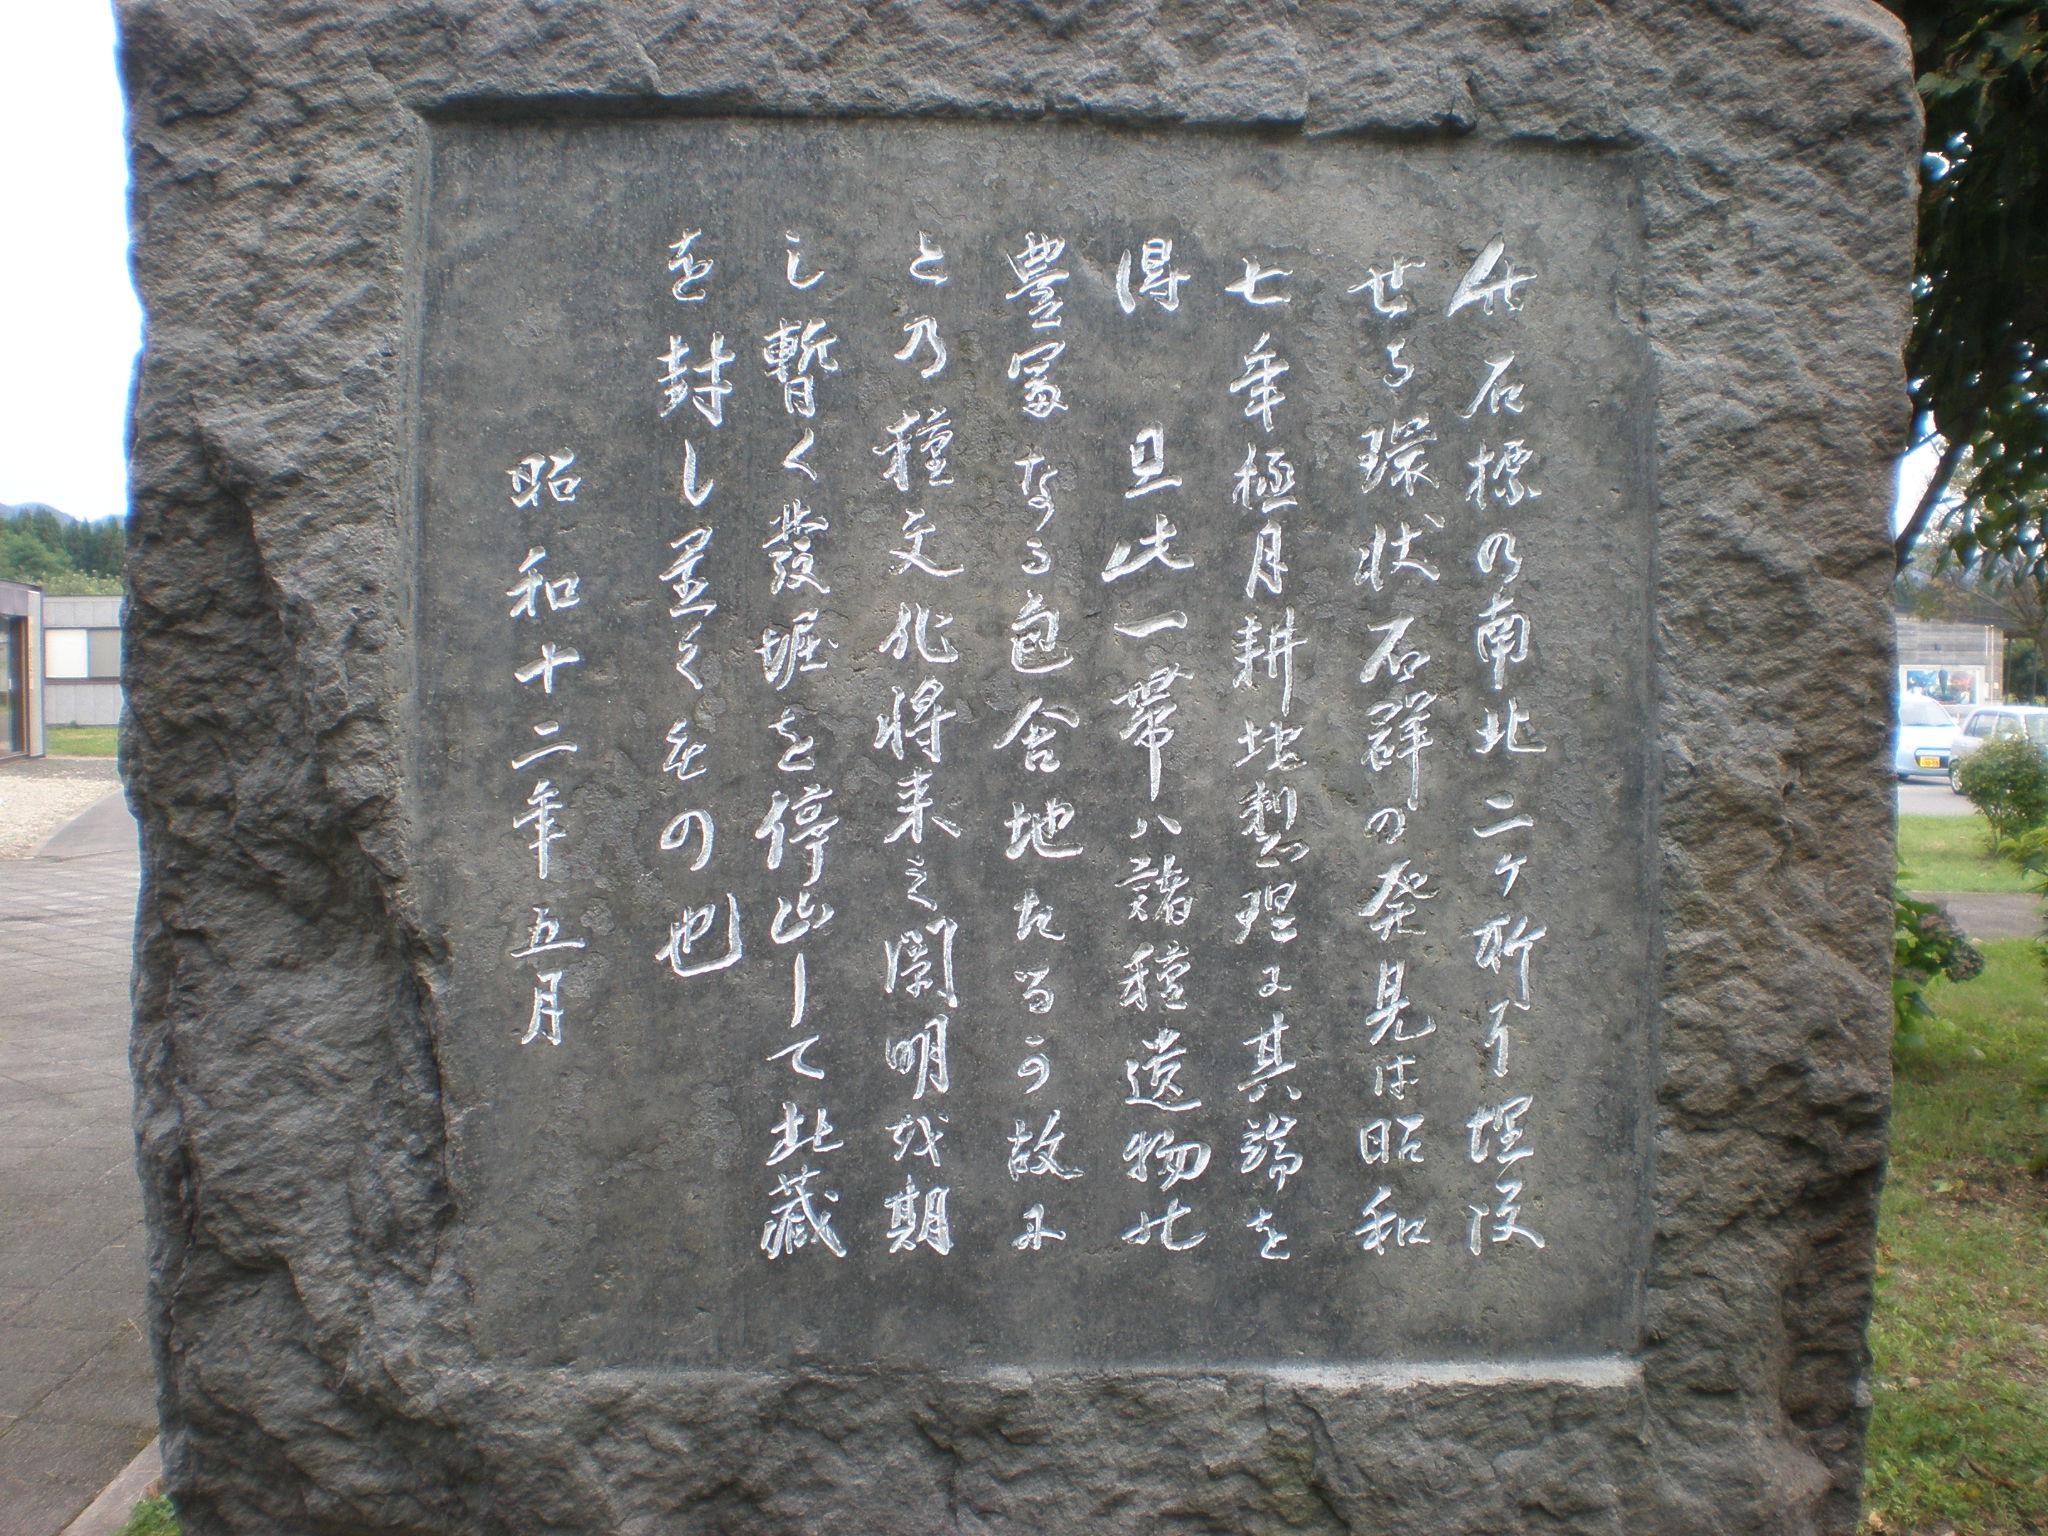 此石標の南北二ケ所に埋没
せる環状石群の発見は昭和
七年極月耕地整理に其端を
得 且此一帯ハ諸種遺物の
豊冨なる包含地たるゟ故に
との種文化将来之闡明を期
し暫く發堀を停止して此蔵
を封し置くもの也
昭和十二年五月